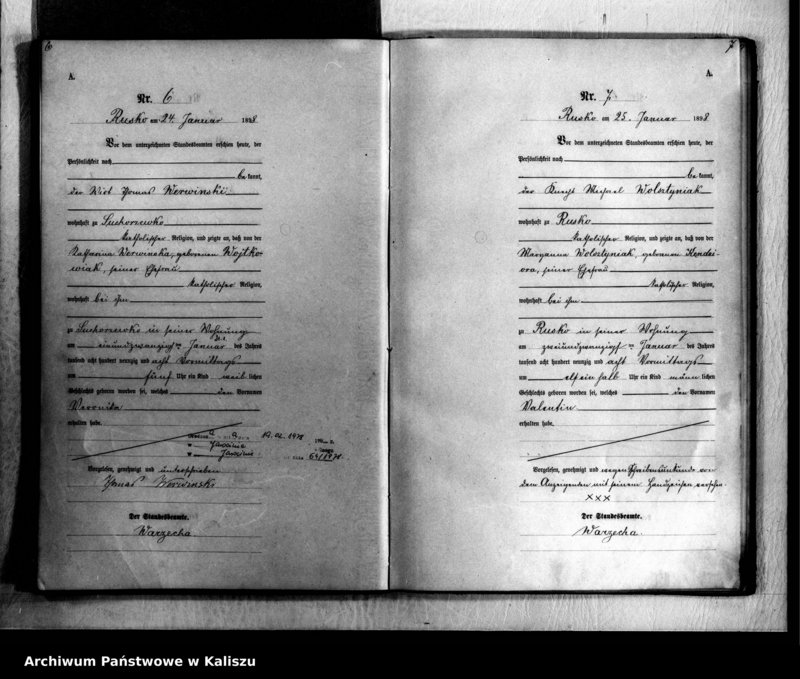 6
A.
Nr. 6
Rusko am 24. Januar 1898
Vor dem unterzeichneten Standesbeamten erschien heute, der
Persönlichkeit nach
bekannt,
der Wirt Thomas Werwinski
wohnhaft zu Suchorzewko
katholischer Religion, und zeigte an, daß von der
Katharina Werwinska, geborenen Wojtko-
wiak, seiner Ehefrau
katholischer Religion,
wohnhaft bei ihm
zu Suchorzewko in seiner Wohnung
am einundzwanzigsten Januar des Jahres
tausend acht hundert neunzig und acht Vormittags
um fünf Uhr ein Kind weiblichen
Geschlechts geboren worden sei, welches den Vornamen
Veronika
erhalten habe.
12.02.1978
Jarocinie
Jarocinie
64/1978
Vorgelesen, genehmigt und unterschrieben
Thomas Werwinski
Der Standesbeamte.
Warzecha.
7
A.
Nr. 7
Rusko am 25. Januar 1898
Vor dem unterzeichneten Standesbeamten erschien heute, der
Persönlichkeit nach
bekannt,
der Knecht Michael Wolsztyniak
wohnhaft zu Rusko
katholischer Religion, und zeigte an, daß von der
Maryanna Wolsztyniak, geborenen
seiner Ehefrau
katholischer Religion,
wohnhaft bei ihm
zu Rusko in seiner Wohnung
am zweiundzwanzigsten Januar des Jahres
tausend acht hundert neunzig und acht Vormittags
um elf ein halb Uhr ein Kind männlichen
Geschlechts geboren worden sei, welches den Vornamen
Valentin
erhalten habe.
Vorgelesen, genehmigt und wegen Schreibensunkunde von
dem Anzeigenden mit seinem Handzeichen versehen.
xxx
Der Standesbeamte.
Warzecha.
Archiwum Państwowe w Kaliszu